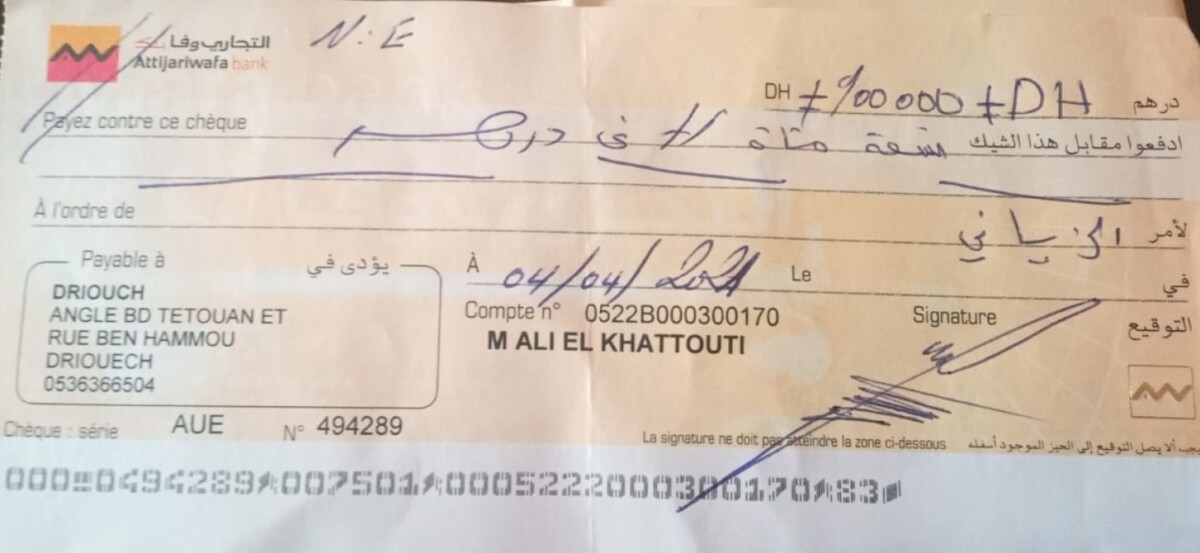 التجاري وفا بنك
Attijariwafa bank
N.E
DH ≠900000 ≠DH درهم
Payez contre ce chèque
ادفعوا مقابل هذا الشيك تسعة مئة الف درهم
À l'ordre de
لأمر الزياني
Payable à يؤدى في
DRIOUCH
ANGLE BD TETOUAN ET
RUE BEN HAMMOU
DRIOUECH
0536366504
À 04/04/2021 Le في
Compte n° 0522B000300170
M ALI EL KHATTOUTI
Signature التوقيع
Chèque : série AUE N° 494289
La signature ne doit pas atteindre la zone ci-dessous يجب ألا يصل التوقيع إلى الحيز الموجود أسفله
0494289 007501 0005222000300170 83